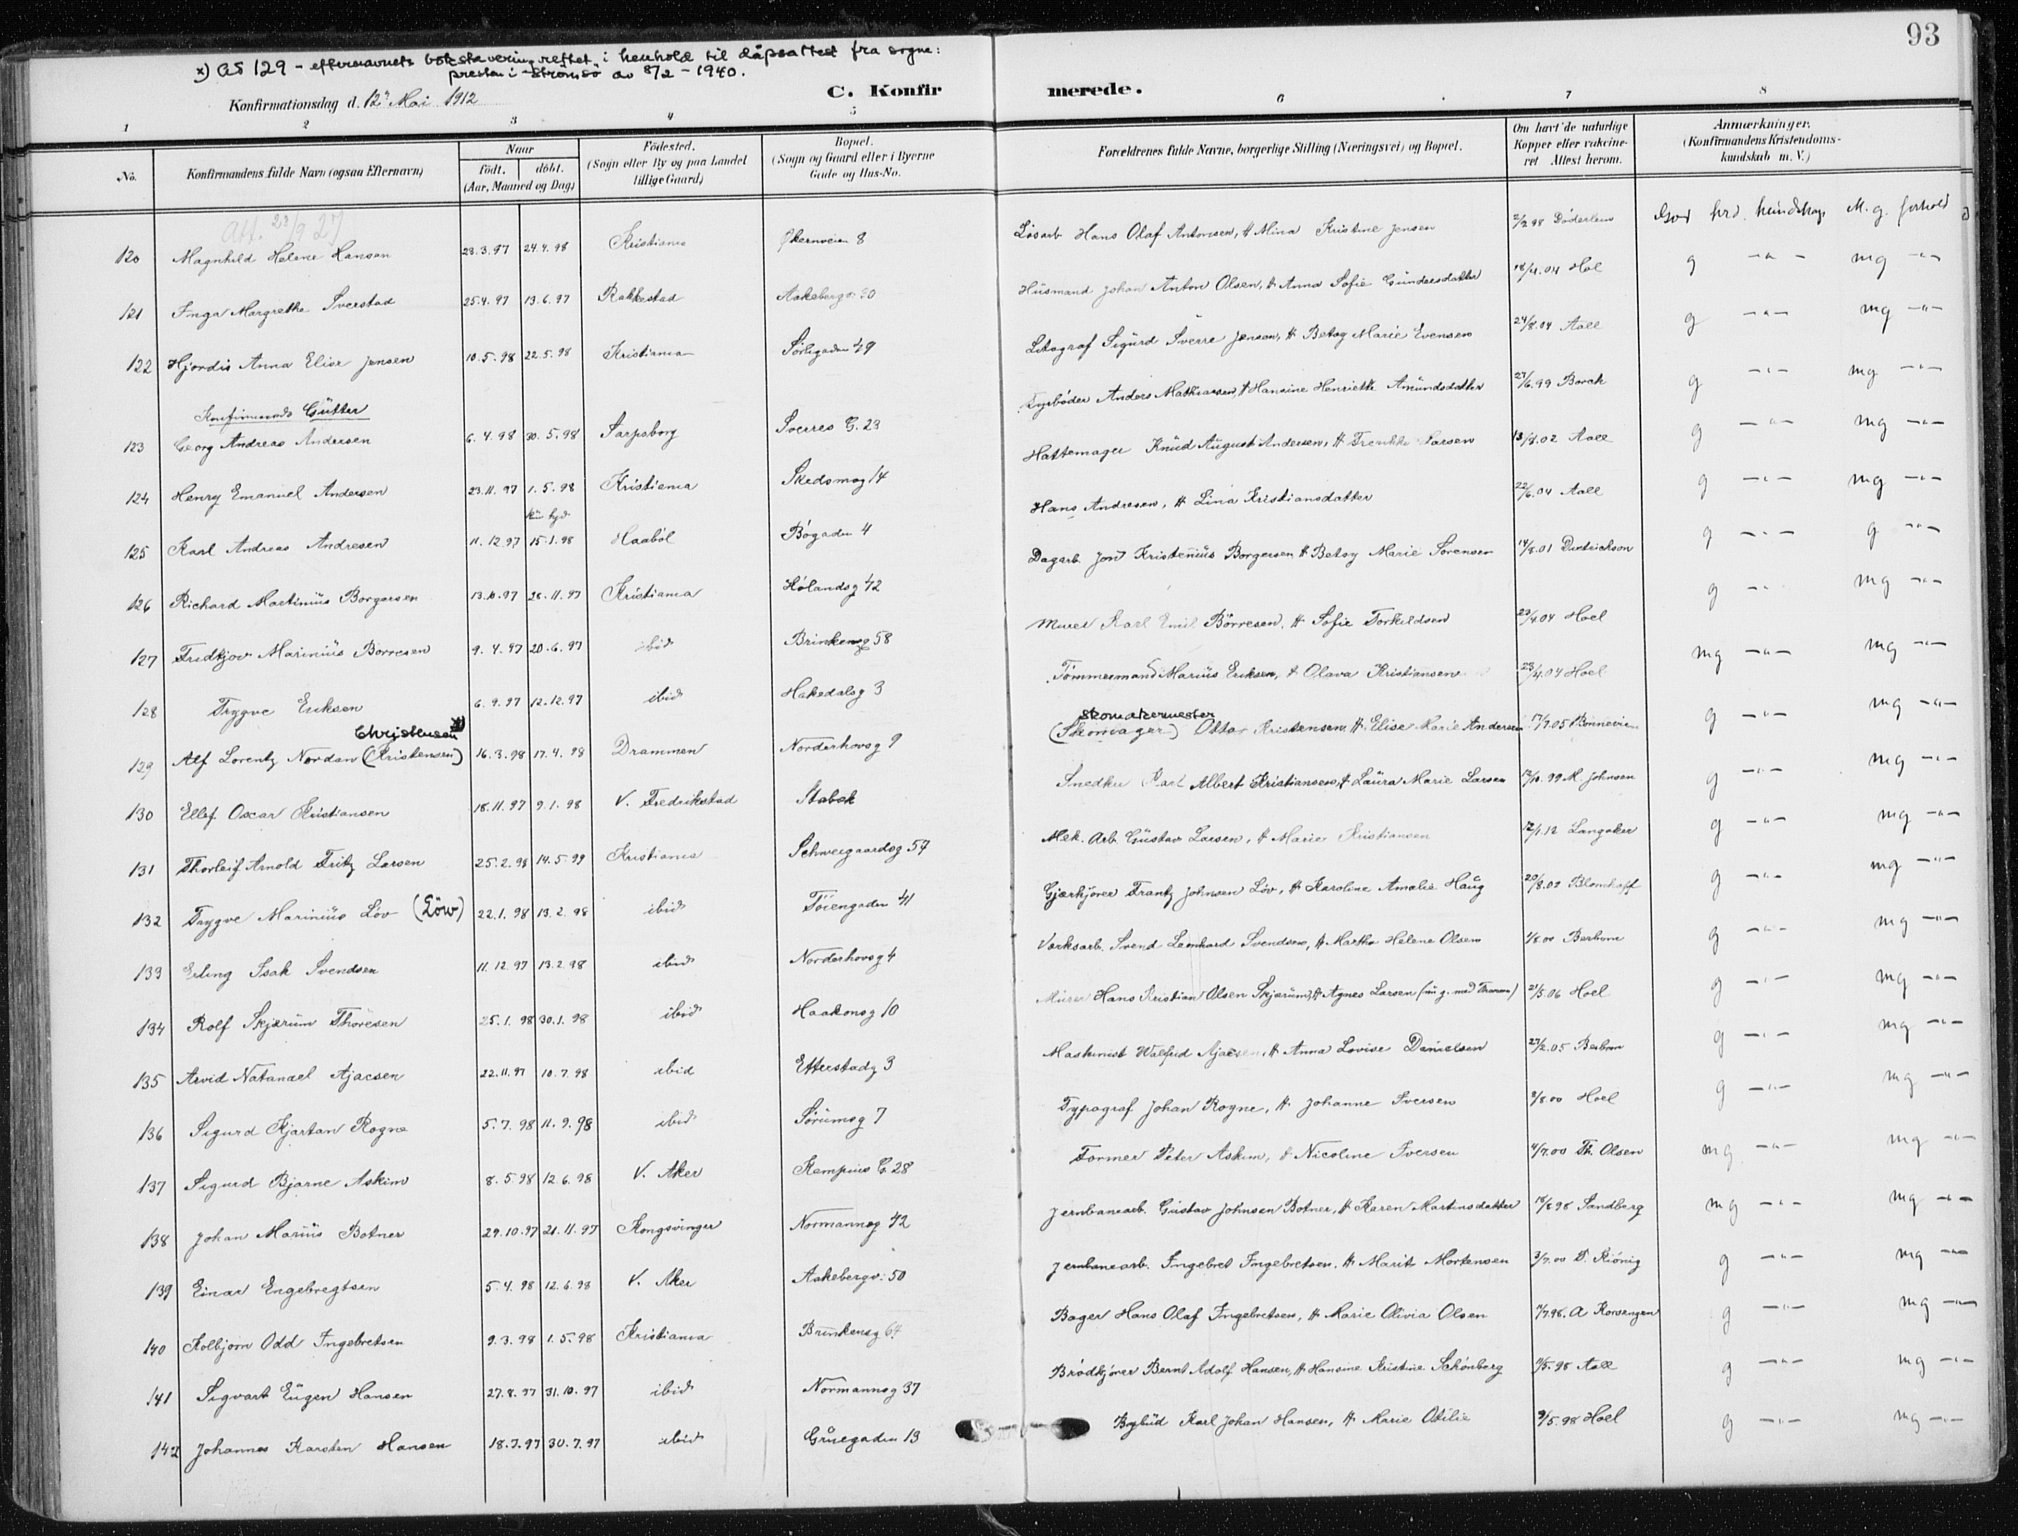 93
x) ad 129 - efternavnets bokstavering rettet i henhold til dåpsattest fra sogne:
presten i Strømsø av 8/2 - 1940.
Konfirmationsdag d. 12te Mai 1912
C. Konfirmerede.
1 2 3 4 5 6 7 8
No. Konfirmandens fulde Navn (ogsaa Efternavn) Naar født. døbt. (Aar, Maaned og Dag) Fødested. (Sogn eller By og paa Landet tillige Gaard) Bopæl. (Sogn og Gaard eller i Byerne Gade og Hus-No. Forældrenes fulde Navne, borgerlige Stilling (Næringsvei) og Bopæl. Om havt de naturlige Kopper eller vakcineret Attest herom. Anmærkninger. (Konfirmandens Kristendomskundskab m. V.)
Att. 23/9 27
120 Magnhild Helene Hansen 23.3.97 24.4.98 Kristiania Økernveien 8 Løsarb Hans Olaf Antonsen, & Mina Kristine Jensen 2/2 98 Døderlein God krd. kundskap M. g. forhold
121 Inga Margrethe Sverstad 25.4.97 13.6.97 Rakkestad Aakebergv 50 Husmand Johan Anton Olsen, & Anna Sofie Gundersdatter 18/4.04 Hoel g -"- mg -"-
122 Hjordis Anna Elise Jensen 10.5.98 22.5.98 Kristiania Sørligaden 49 Litograf Sigurd Sverre Jensen, & Betsy Marie Evensen 24/8.04 Aall g -"- mg -"-
Konfirmerede Gutter
123 Georg Andreas Andersen 6.4.98 30.5.98 Sarpsborg Sverres G. 23 Fyrbøder Anders Mathiassen, & Hansine Henriette Amundsdatter 27/6.99 Borch g -"- mg -"-
124 Henry Emanuel Andersen 23.11.97 1.5.98 Kristiania Skedsmog 14 Hattemager Knud August Andersen, & Fredrikke Larsen 13/8.02 Aall g -"- mg -"-
125 Karl Andreas Andresen 11.12.97 15.1.98 Haabøl Bøgaden 4 Hans Andresen, & Lina Kristiansdatter 22/6.04 Aall g -"- mg -"-
126 Richard Martinius Borgersen 13.10.97 28.11.97 Kristiania Hølandsg 42 Dagarb. Jon Kristenius Borgersen & Betsy Marie Sørensen 14/8.01 Dietrichson g -"- g -"-
127 Fridtjov Marinius Børresen 9.4.97 20.6.97 ibid Brinkensg 58 Murer Karl Emil Børresen, & Sofie Torkildsen 23/4.04 Hoel g -"- mg -"-
128 Trygve Eriksen 6.9.97 12.12.97 ibid Hakedalsg 3 Tømmermand Marius Eriksen, & Olava Kristiansen 23/4.04 Hoel mg -"- mg -"-
129 Alf Lorentz Nordan (Kristensen) Christensen x) 16.3.98 17.4.98 Drammen Norderhovsg 9 (Skomager) Skomakermester Ottar Kristensen, & Elise Marie Andersen 17/7.05 Bonnevie g -"- mg -"-
130 Ellef Oscar Kristiansen 18.11.97 9.1.98 V. Fredrikstad Stabæk Snedker Karl Albert Kristiansen, & Laura Marie Larsen 12/10.99 M. Johnsen g -"- mg -"-
131 Thorleif Arnold Fritz Larsen 25.2.98 14.5.99 Kristiania Schweigaardsg 57 Mek. Arb. Gustav Larsen, & Marie Kristiansen 12/1.12 Langaker g -"- mg -"-
132 Trygve Marinius Løv (Löw) 22.1.98 13.2.98 ibid Tøiengaden 41 Gjærkjører Frantz Johnsen Løv, & Karoline Amalie Haug 20/8.09 Blomhoff g -"- mg -"-
133 Erling Isak Svendsen 11.12.97 13.2.98 ibid Norderhovsg 4 Værksarb. Svend Leonhard Svendsen, & Martha Helene Olsen 1/8.00 Berbom g -"- mg -"-
134 Rolf Skjærum Thoresen 25.1.98 30.1.98 ibid Haakonsg 10 Murer Hans Kristian Olsen Skjærum, & Agnes Larsen (nu g. med Thoresen) 21/5.06 Hoel g -"- mg -"-
135 Arvid Natanael Ajacsen 22.11.97 10.7.98 ibid Etterstadg 3 Maskinist Walfrid Ajacsen, & Anna Lovise Danielsen 27/2.05 Berbom g -"- mg -"-
136 Sigurd Kjartan Rogne 5.7.98 11.9.98 ibid Sørumsg 7 Typograf Johan Rogne, & Johanne Iversen 9/8.00 Hoel g -"- mg -"-
137 Sigurd Bjarne Askim 8.5.98 12.6.98 V. Aker Kempins G. 28 Former Peter Askim, & Nicoline Iversen 4/7.00 Th. Olsen mg -"- mg -"-
138 Johan Marius Botner 29.10.97 21.11.97 Kongsvinger Normannsg 42 Jernbanearb. Gustav Johnsen Botner, & Karen Martinsdatter 18/8 98 Sandberg mg -"- mg -"-
139 Einar Engebregtsen 5.4.98 12.6.98 V. Aker Aakebergv. 50 Jernbanearb. Ingebret Ingebretsen, & Marit Mortensen 3/7.00 g -"- mg -"-
140 Kolbjørn Odd Ingebretsen 9.3.98 1.5.98 Kristiania Brinkensg 64 Bager Hans Olaf Ingebretsen, & Marie Olivia Olsen A Korsengen g -"- mg -"-
141 Sigvart Eugen Hansen 27.8.97 31.10.97 ibid Normannsg 37 Brødkjører Bernt Adolf Hansen, & Hansine Kristine Schønberg Aall g -"- mg -"-
142 Johannes Karsten Hansen 18.7.97 30.7.97 ibid Gruegaden 13 Bybud Karl Johan Hansen, & Marie Otilie 9/5.98 Hoel g -"- mg -"-